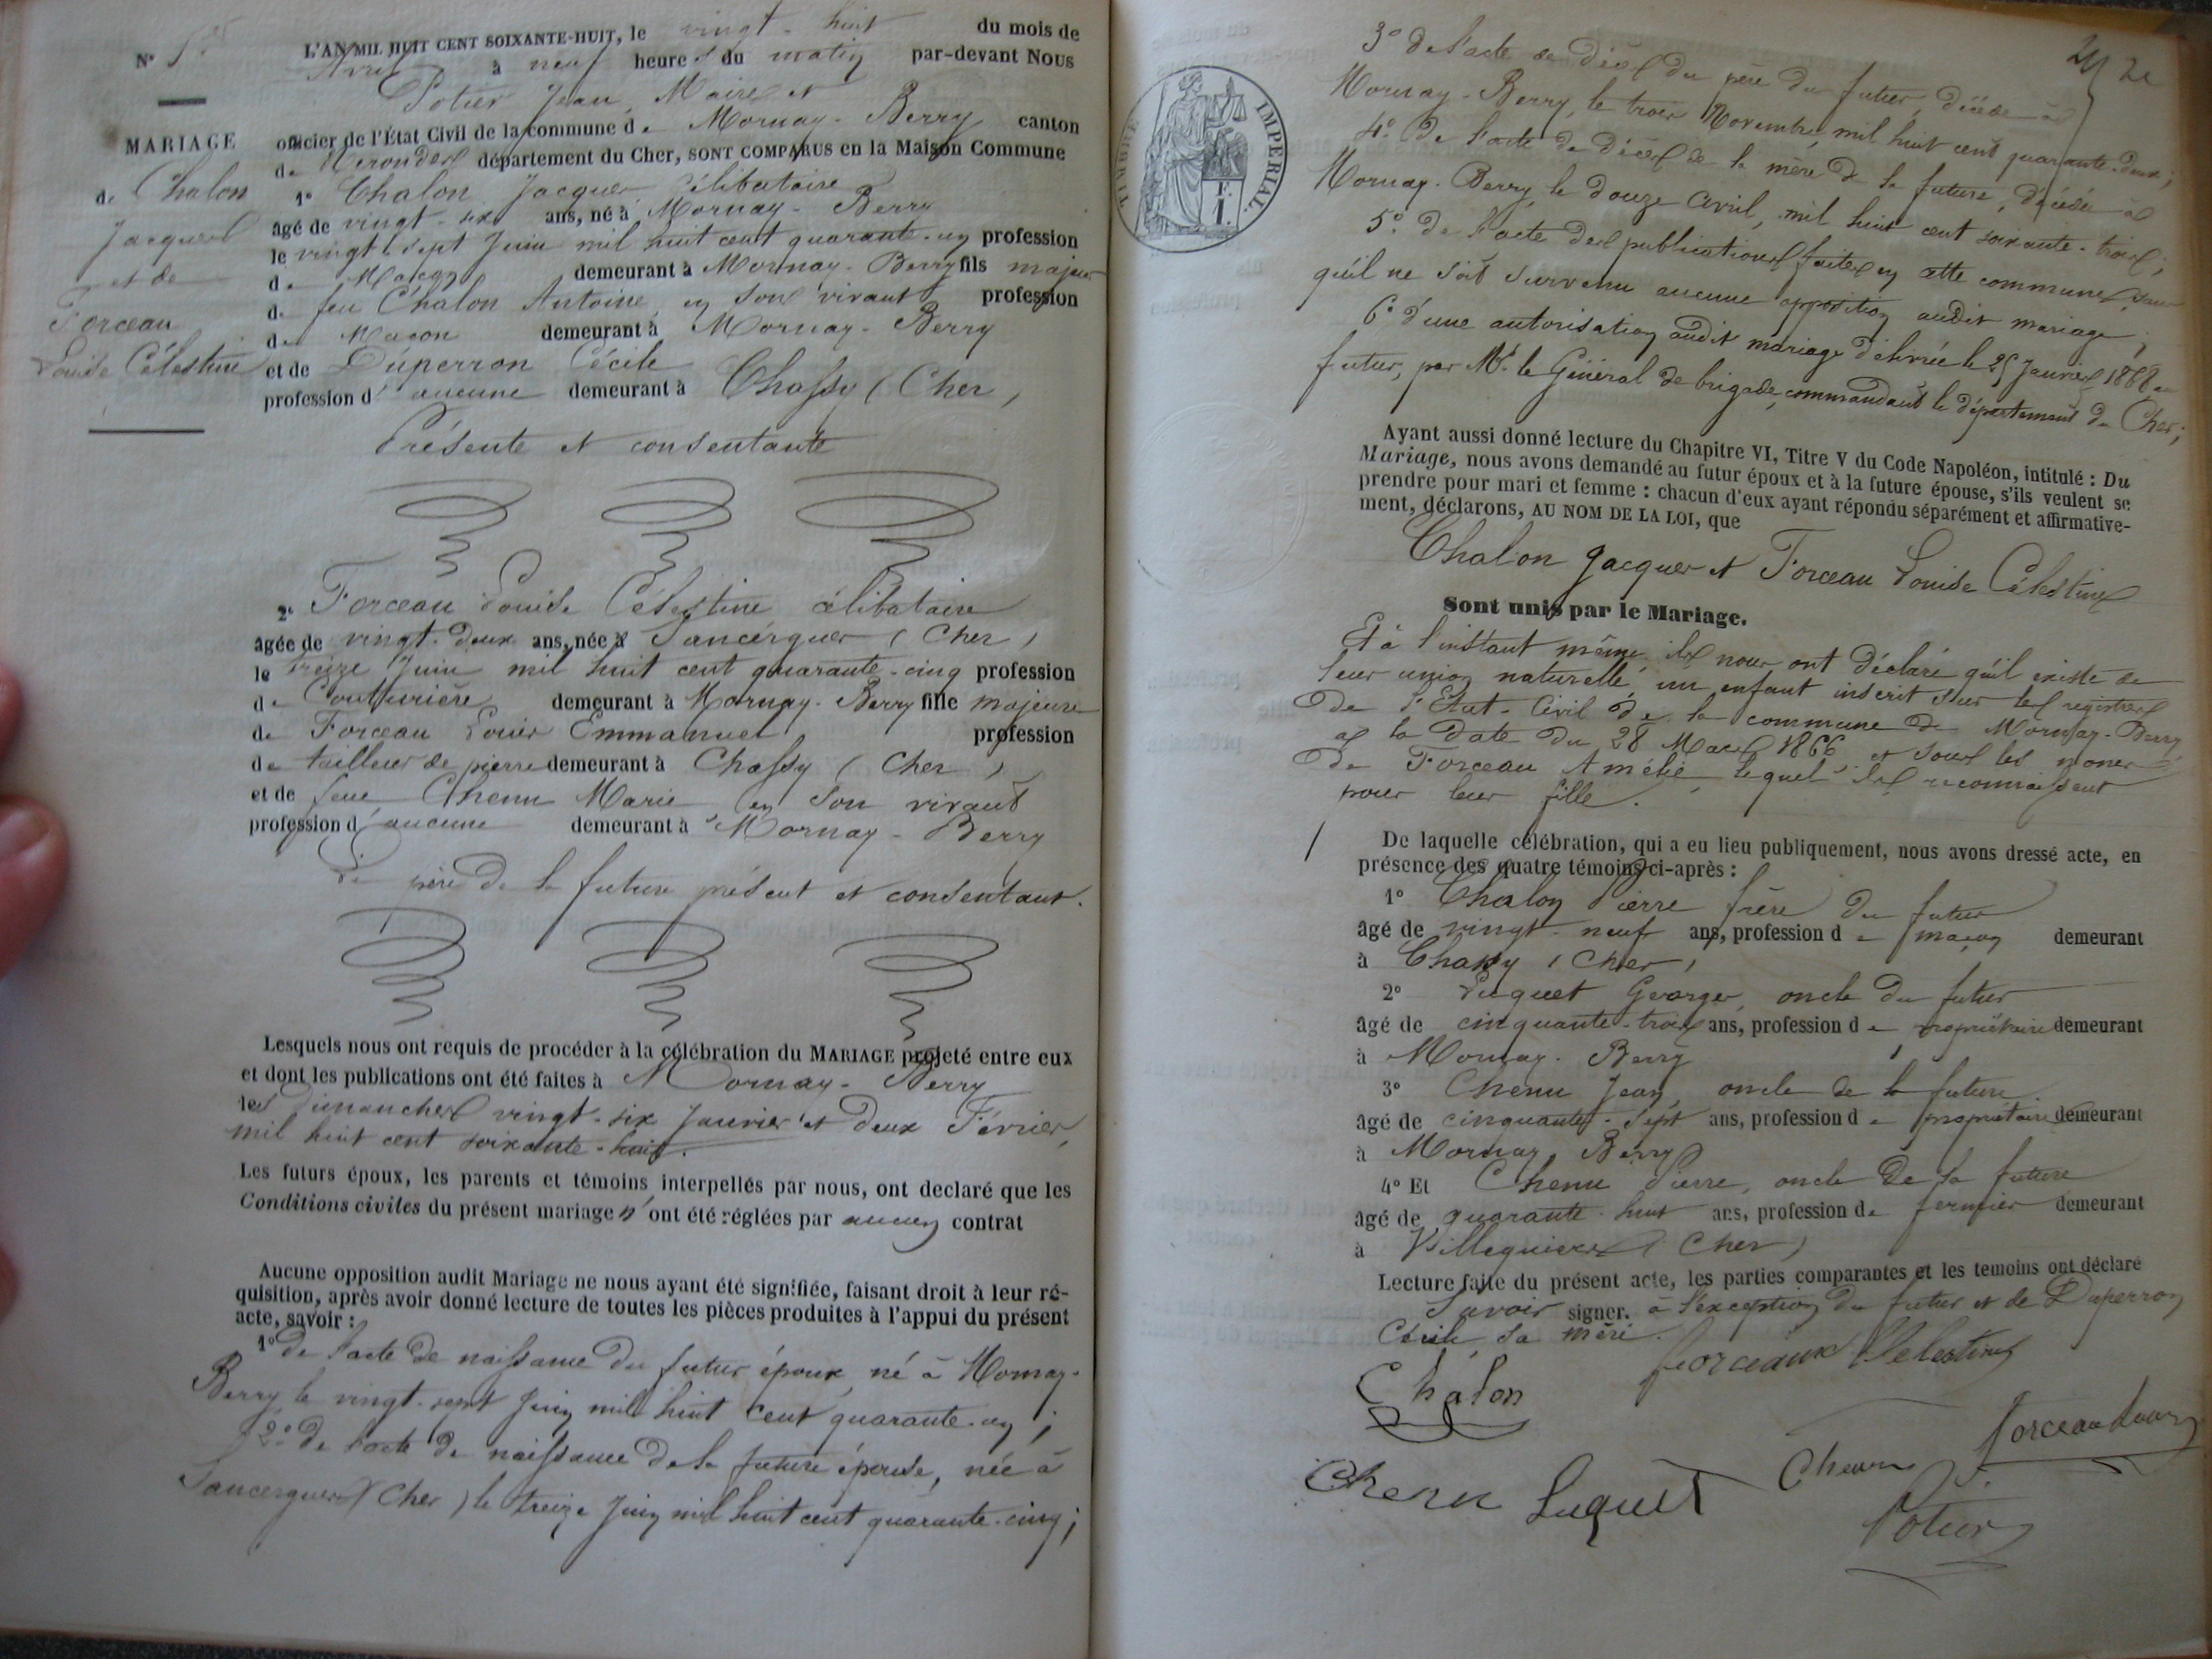 N° 5
L'AN MIL HUIT CENT SOIXANTE-HUIT, le vingt-huit du mois de
Avril à neuf heures du matin par-devant NOUS
Potier Jean, Maire et
officier de l'État Civil de la commune de Mornay-Berry canton
de Nerondes département du Cher, SONT COMPARUS en la Maison Commune
MARIAGE
de Chalon
Jacques
et de
Forceau
Louise Célestine
1° Chalon Jacques célibataire
âgé de vingt-six ans, né à Mornay-Berry
le vingt sept Juin mil huit cent quarante-un profession
de Maçon demeurant à Mornay-Berry fils majeur
de feu Chalon Antoine en son vivant profession
de Maçon demeurant à Mornay-Berry
et de Duperron Cécile
profession d'aucune demeurant à Chassy (Cher)
Présente et consentante
2° Forceau Louise Célestine célibataire
âgée de vingt-deux ans, née à Sancergues (Cher)
le treize Juin mil huit cent quarante-cinq profession
de Couturière demeurant à Mornay-Berry fille majeure
de Forceau Louis Emmanuel profession
de tailleur de pierre demeurant à Chassy (Cher)
et de feue Chenu Marie en son vivant
profession d'aucune demeurant à Mornay-Berry
Le père de la future présent et consentant.
Lesquels nous ont requis de procéder à la célébration du MARIAGE projeté entre eux
et dont les publications ont été faites à Mornay-Berry
les Dimanches vingt-six Janvier et deux Février,
mil huit cent soixante-huit.
Les futurs époux, les parents et témoins interpellés par nous, ont declaré que les
Conditions civiles du présent mariage n'ont été réglées par aucun contrat
Aucune opposition audit Mariage ne nous ayant été signifiée, faisant droit à leur ré-
quisition, après avoir donné lecture de toutes les pièces produites à l'appui du présent
acte, savoir :
1° de l'acte de naissance du futur époux, né à Mornay-
Berry le vingt-sept Juin mil huit cent quarante-un ;
2° de l'acte de naissance de la future épouse, née à
Sancergues (Cher) le treize Juin mil huit cent quarante-cinq ;
3° de l'acte de décès du père du futur, décédé à
Mornay-Berry, le trois Novembre, mil huit cent quarante-deux ;
4° De l'acte de décès de la mère de la future, décédée à
Mornay-Berry le douze Avril, mil huit cent soixante-trois ;
5° De l'acte des publications faites en cette commune, sans
qu'il ne soit survenu aucune opposition audit mariage ;
6° d'une autorisation audit mariage délivrée le 25 Janvier 1868 au
futur, par Mr. le Général de brigade, commandant le département du Cher ;
TIMBRE IMPERIAL
Ayant aussi donné lecture du Chapitre VI, Titre V du Code Napoléon, intitulé : Du
Mariage, nous avons demandé au futur époux et à la future épouse, s'ils veulent se
prendre pour mari et femme : chacun d'eux ayant répondu séparément et affirmative-
ment, déclarons, AU NOM DE LA LOI, que
Chalon Jacques et Forceau Louise Célestine
Sont unis par le Mariage.
Et à l'instant même ils nous ont déclaré qu'il existe de
leur union naturelle, un enfant inscrit sur les registres
de l'Etat-Civil de la commune de Mornay-Berry
à la date du 28 Mars 1866, et sous les noms
de Forceau Amélie, lequel ils reconnaissent
pour leur fille.
De laquelle célébration, qui a eu lieu publiquement, nous avons dressé acte, en
présence des quatre témoins ci-après :
1° Chalon Pierre frère du futur
âgé de vingt-neuf ans, profession de maçon demeurant
à Chassy (Cher)
2° Luquet Georges, oncle du futur
âgé de cinquante-trois ans, profession de propriétaire demeurant
à Mornay-Berry
3° Chenu Jean, oncle de la future
âgé de cinquante-sept ans, profession de propriétaire demeurant
à Mornay Berry
4° Et Chenu Pierre, oncle de la future
âgé de quarante-huit ans, profession de fermier demeurant
à Villequiers (Cher)
Lecture faite du présent acte, les parties comparantes et les temoins ont déclaré
Savoir signer. à l'exception du futur et de Duperron
Cécile, sa mère.
Chalon
forceaux Celestine
Chenu Luquet
Chenu
forceau Louis
Potier